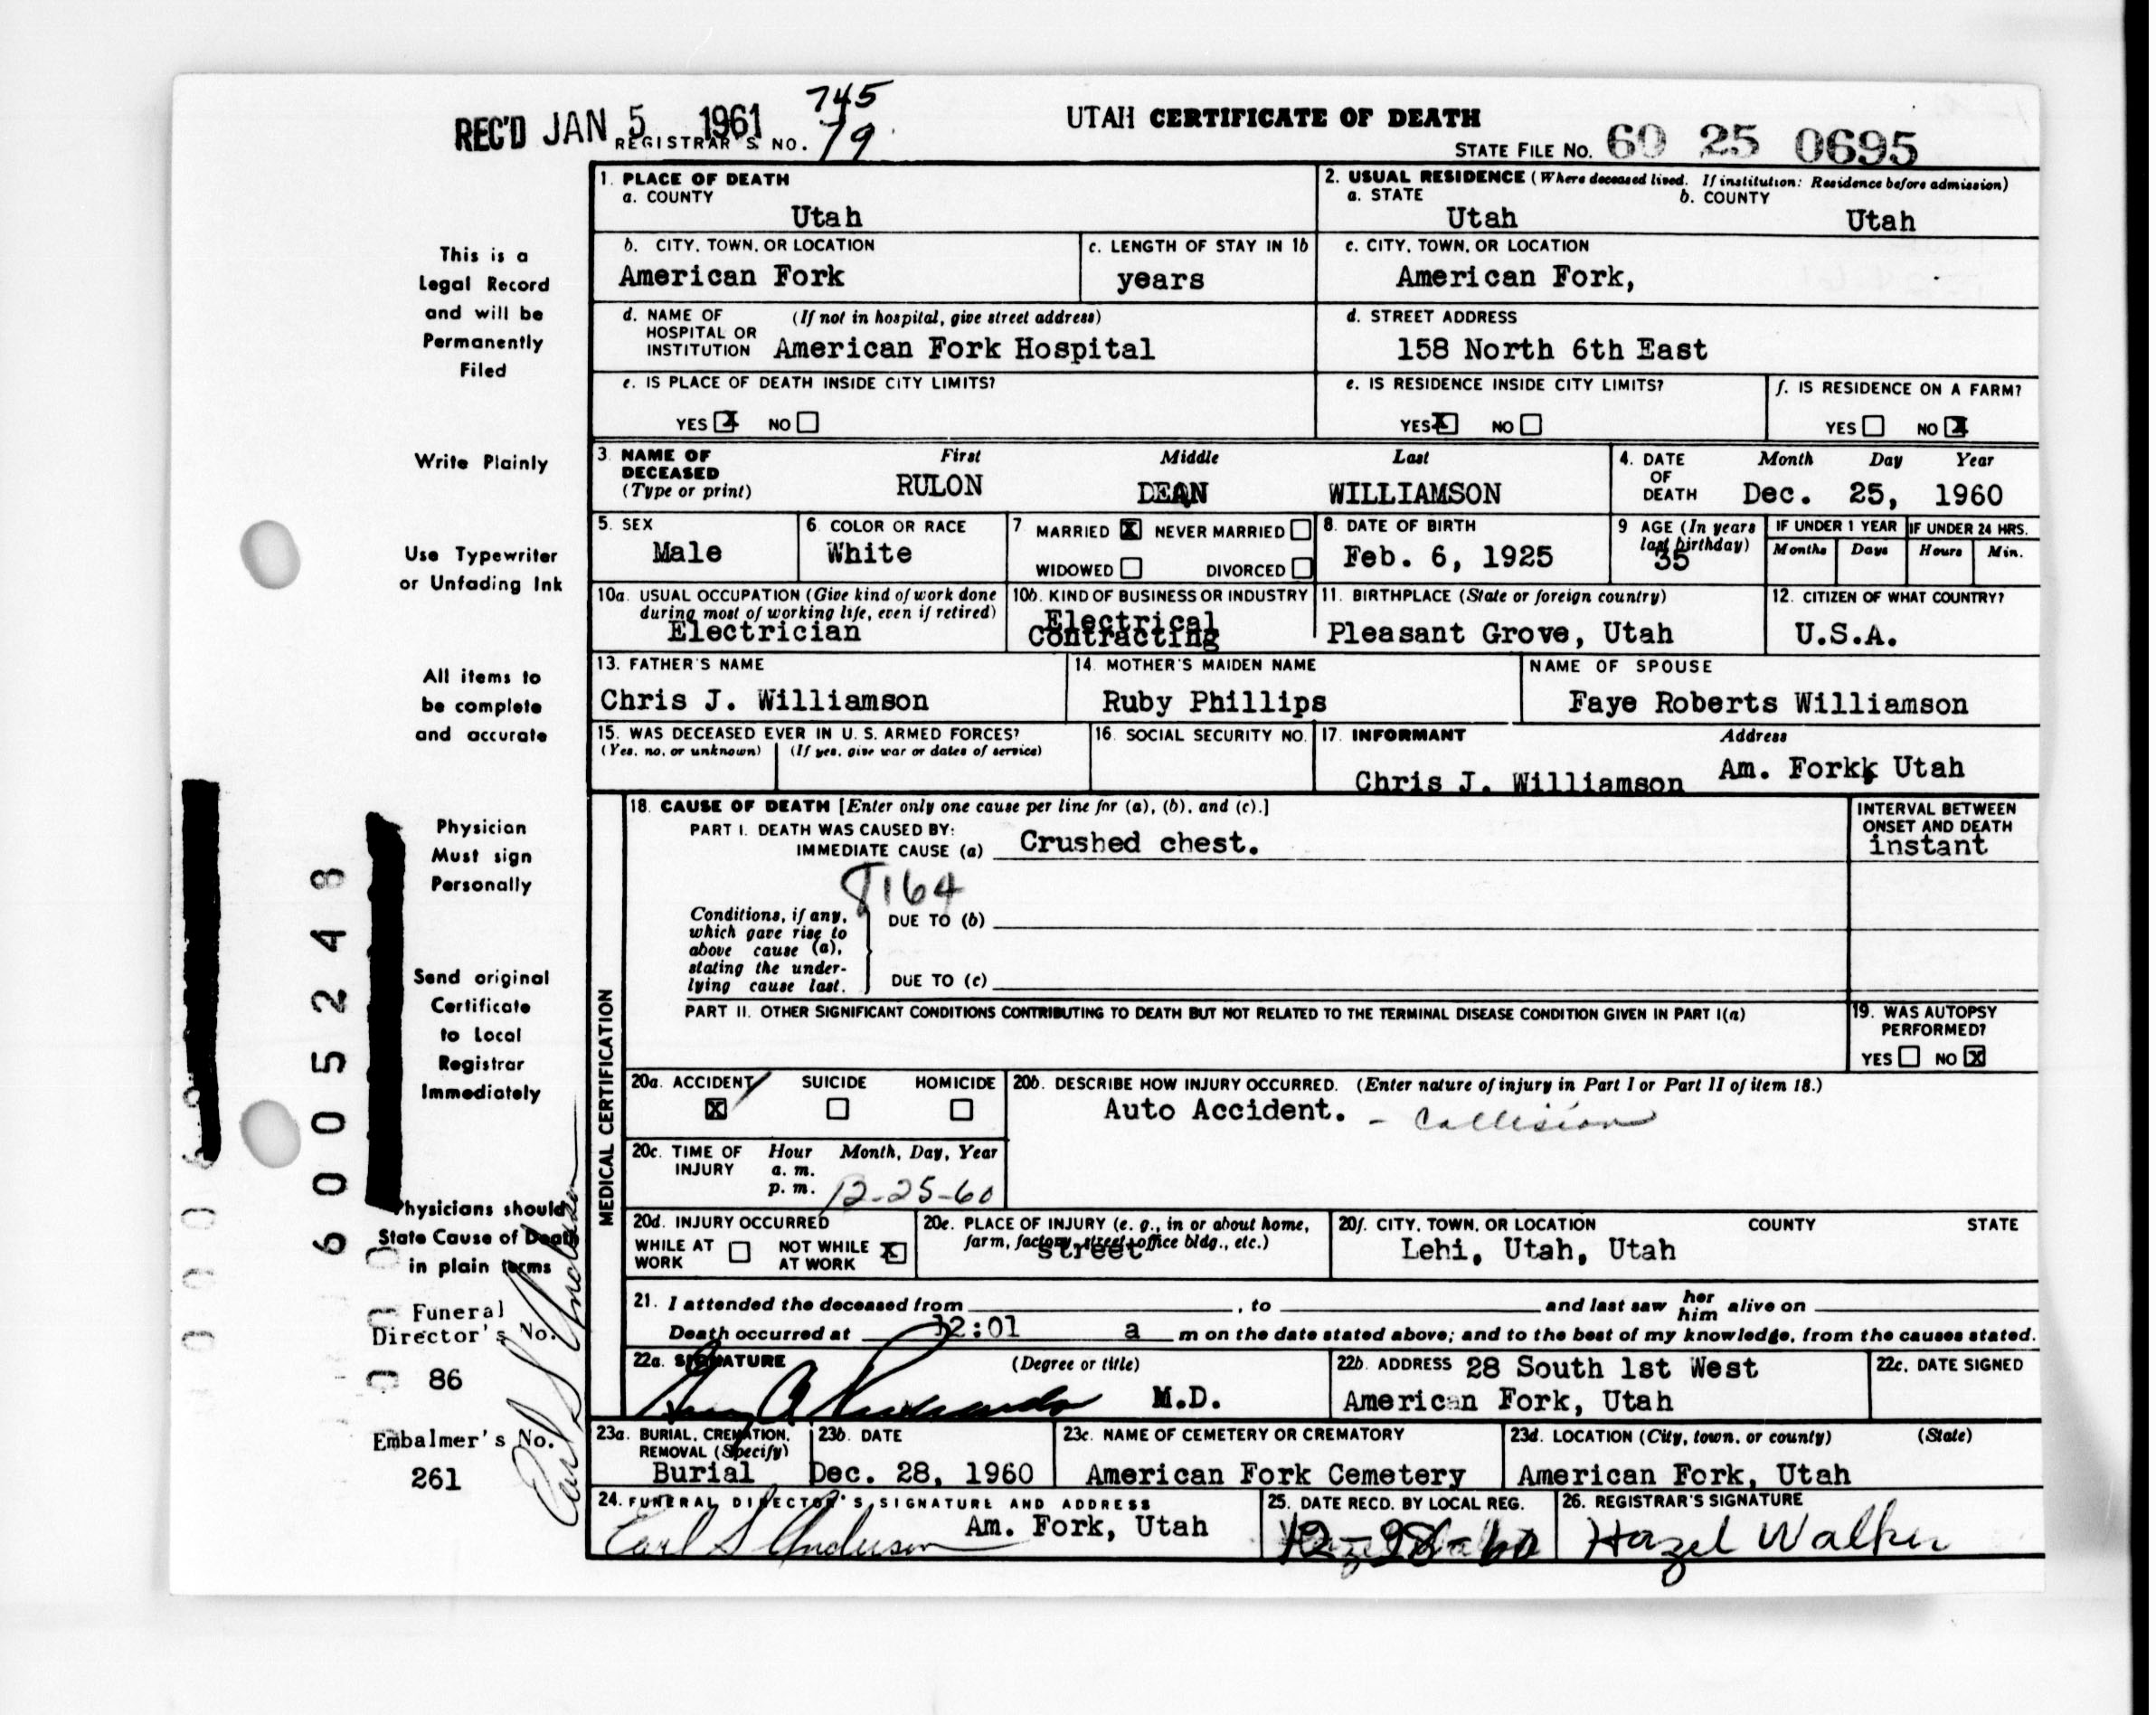 745
REC'D JAN 5 1961 REGISTRAR'S NO. 79
UTAH CERTIFICATE OF DEATH
STATE FILE NO. 60 25 0695
This is a
Legal Record
and will be
Permanently
Filed
Write Plainly
Use Typewriter
or Unfading Ink
All items to
be complete
and accurate
Physician
Must sign
Personally
Send original
Certificate
to Local
Registrar
Immediately
Physicians should
State Cause of Death
in plain terms
Funeral
Director's No.
86
Embalmer's No.
261
Earl S Anderson
6005248
1. PLACE OF DEATH
a. COUNTY
Utah
2. USUAL RESIDENCE (Where deceased lived. If institution: Residence before admission)
a. STATE b. COUNTY
Utah Utah
b. CITY, TOWN, OR LOCATION
American Fork
c. LENGTH OF STAY IN 1b
years
c. CITY, TOWN, OR LOCATION
American Fork,
d. NAME OF (If not in hospital, give street address)
HOSPITAL OR
INSTITUTION American Fork Hospital
d. STREET ADDRESS
158 North 6th East
e. IS PLACE OF DEATH INSIDE CITY LIMITS?
YES X NO
e. IS RESIDENCE INSIDE CITY LIMITS?
YES X NO
f. IS RESIDENCE ON A FARM?
YES NO X
3. NAME OF First Middle Last
DECEASED
(Type or print) RULON DEAN WILLIAMSON
4. DATE Month Day Year
OF
DEATH Dec. 25, 1960
5. SEX
Male
6. COLOR OR RACE
White
7 MARRIED X NEVER MARRIED
WIDOWED DIVORCED
8. DATE OF BIRTH
Feb. 6, 1925
9 AGE (In years
last birthday)
35
IF UNDER 1 YEAR IF UNDER 24 HRS.
Months Days Hours Min.
10a. USUAL OCCUPATION (Give kind of work done
during most of working life, even if retired)
Electrician
10b. KIND OF BUSINESS OR INDUSTRY
Electrical
Contracting
11. BIRTHPLACE (State or foreign country)
Pleasant Grove, Utah
12. CITIZEN OF WHAT COUNTRY?
U.S.A.
13. FATHER'S NAME
Chris J. Williamson
14. MOTHER'S MAIDEN NAME
Ruby Phillips
NAME OF SPOUSE
Faye Roberts Williamson
15. WAS DECEASED EVER IN U. S. ARMED FORCES?
(Yes, no, or unknown) (If yes, give war or dates of service)
16. SOCIAL SECURITY NO.
17. INFORMANT Address
Chris J. Williamson Am. Fork, Utah
MEDICAL CERTIFICATION
18. CAUSE OF DEATH [Enter only one cause per line for (a), (b), and (c).]
PART I. DEATH WAS CAUSED BY:
IMMEDIATE CAUSE (a) Crushed chest.
INTERVAL BETWEEN
ONSET AND DEATH
instant
8164
Conditions, if any,
which gave rise to
above cause (a),
stating the under-
lying cause last.
DUE TO (b)
DUE TO (c)
PART II. OTHER SIGNIFICANT CONDITIONS CONTRIBUTING TO DEATH BUT NOT RELATED TO THE TERMINAL DISEASE CONDITION GIVEN IN PART I(a)
19. WAS AUTOPSY
PERFORMED?
YES NO X
20a. ACCIDENT SUICIDE HOMICIDE
X
20b. DESCRIBE HOW INJURY OCCURRED. (Enter nature of injury in Part I or Part II of item 18.)
Auto Accident. - Collision
20c. TIME OF Hour Month, Day, Year
INJURY a. m.
p. m. 12-25-60
20d. INJURY OCCURRED
WHILE AT NOT WHILE X
WORK AT WORK
20e. PLACE OF INJURY (e. g., in or about home,
farm, factory, street, office bldg., etc.)
street
20f. CITY, TOWN, OR LOCATION COUNTY STATE
Lehi, Utah, Utah
21. I attended the deceased from , to and last saw her him alive on
Death occurred at 12:01 a m on the date stated above; and to the best of my knowledge, from the causes stated.
22a. SIGNATURE (Degree or title)
M.D.
22b. ADDRESS 28 South 1st West
American Fork, Utah
22c. DATE SIGNED
23a. BURIAL, CREMATION,
REMOVAL (Specify)
Burial
23b. DATE
Dec. 28, 1960
23c. NAME OF CEMETERY OR CREMATORY
American Fork Cemetery
23d. LOCATION (City, town, or county) (State)
American Fork, Utah
24. FUNERAL DIRECTOR'S SIGNATURE AND ADDRESS
Earl S Anderson Am. Fork, Utah
25. DATE RECD. BY LOCAL REG.
12-28-60
26. REGISTRAR'S SIGNATURE
Hazel Walker